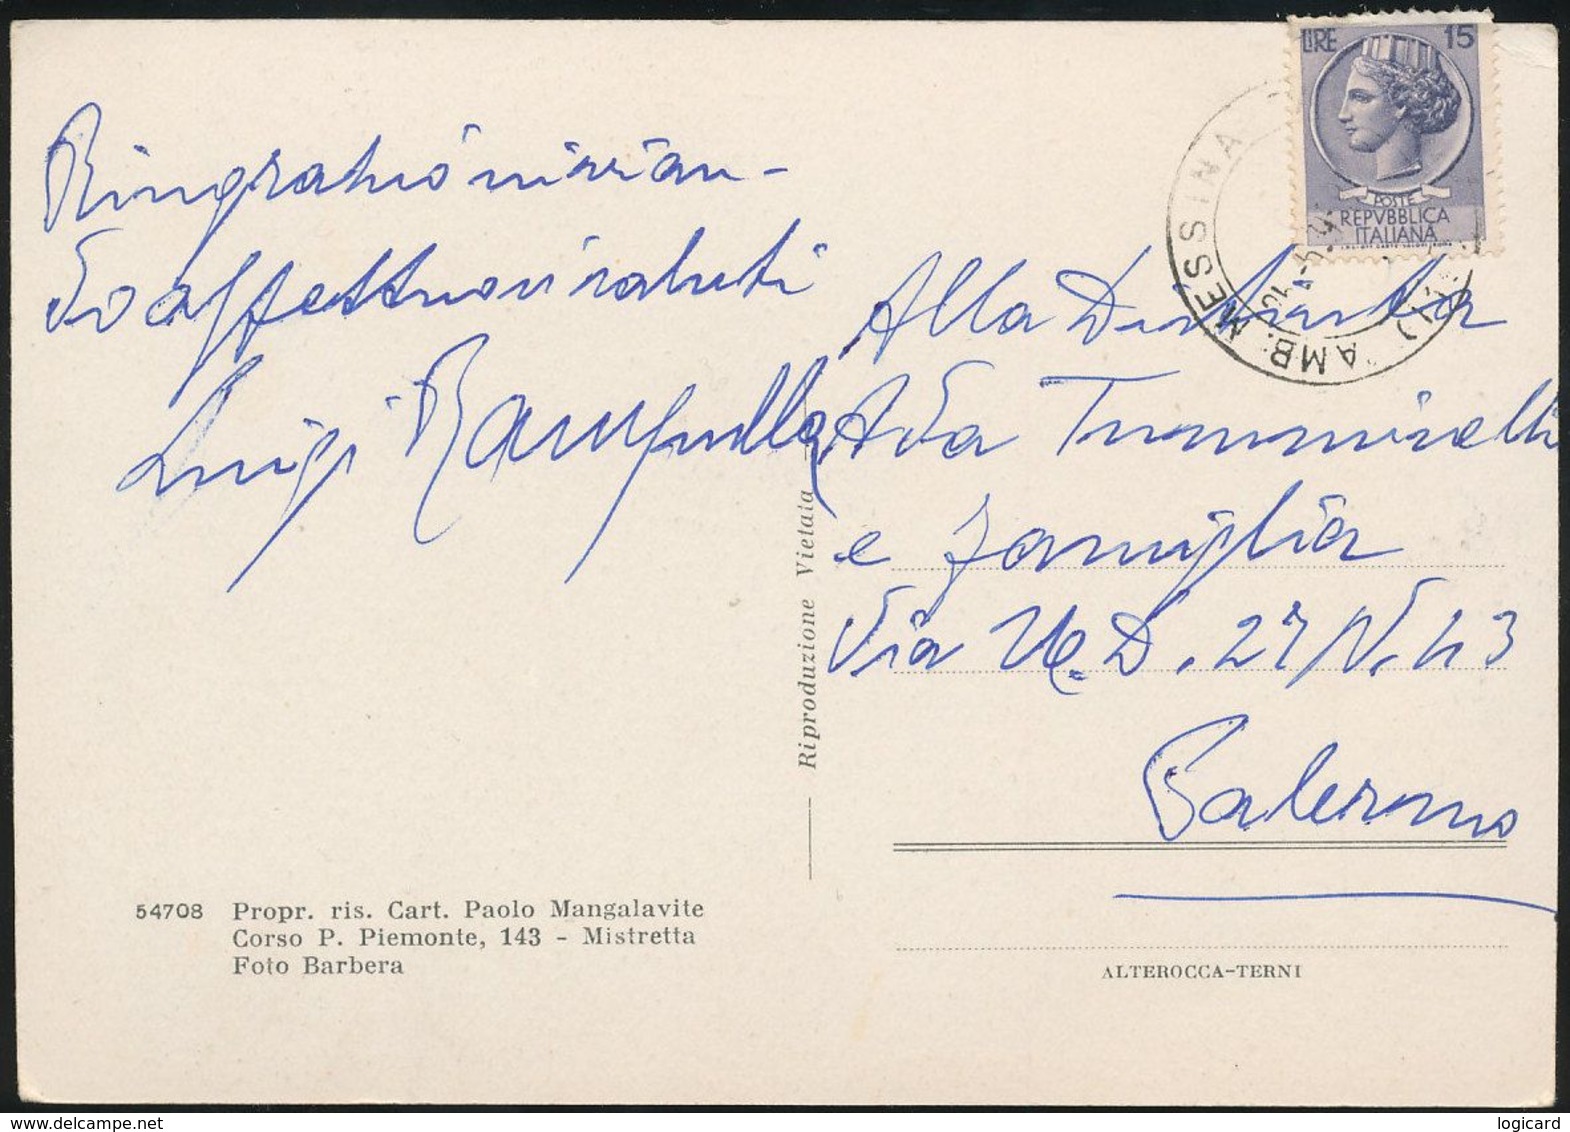 Ringratio invian-
do affettuosi saluti
Luigi Rampulla
LIRE 15
POSTE
REPVBBLICA
ITALIANA
AMB. MESSINA
Alla Distinta
Ada Tumminelli
e famiglia
Via U. D. 27 N. 43
Palermo
Riproduzione Vietata
54708 Propr. ris. Cart. Paolo Mangalavite
Corso P. Piemonte, 143 - Mistretta
Foto Barbera
ALTEROCCA-TERNI
logicard